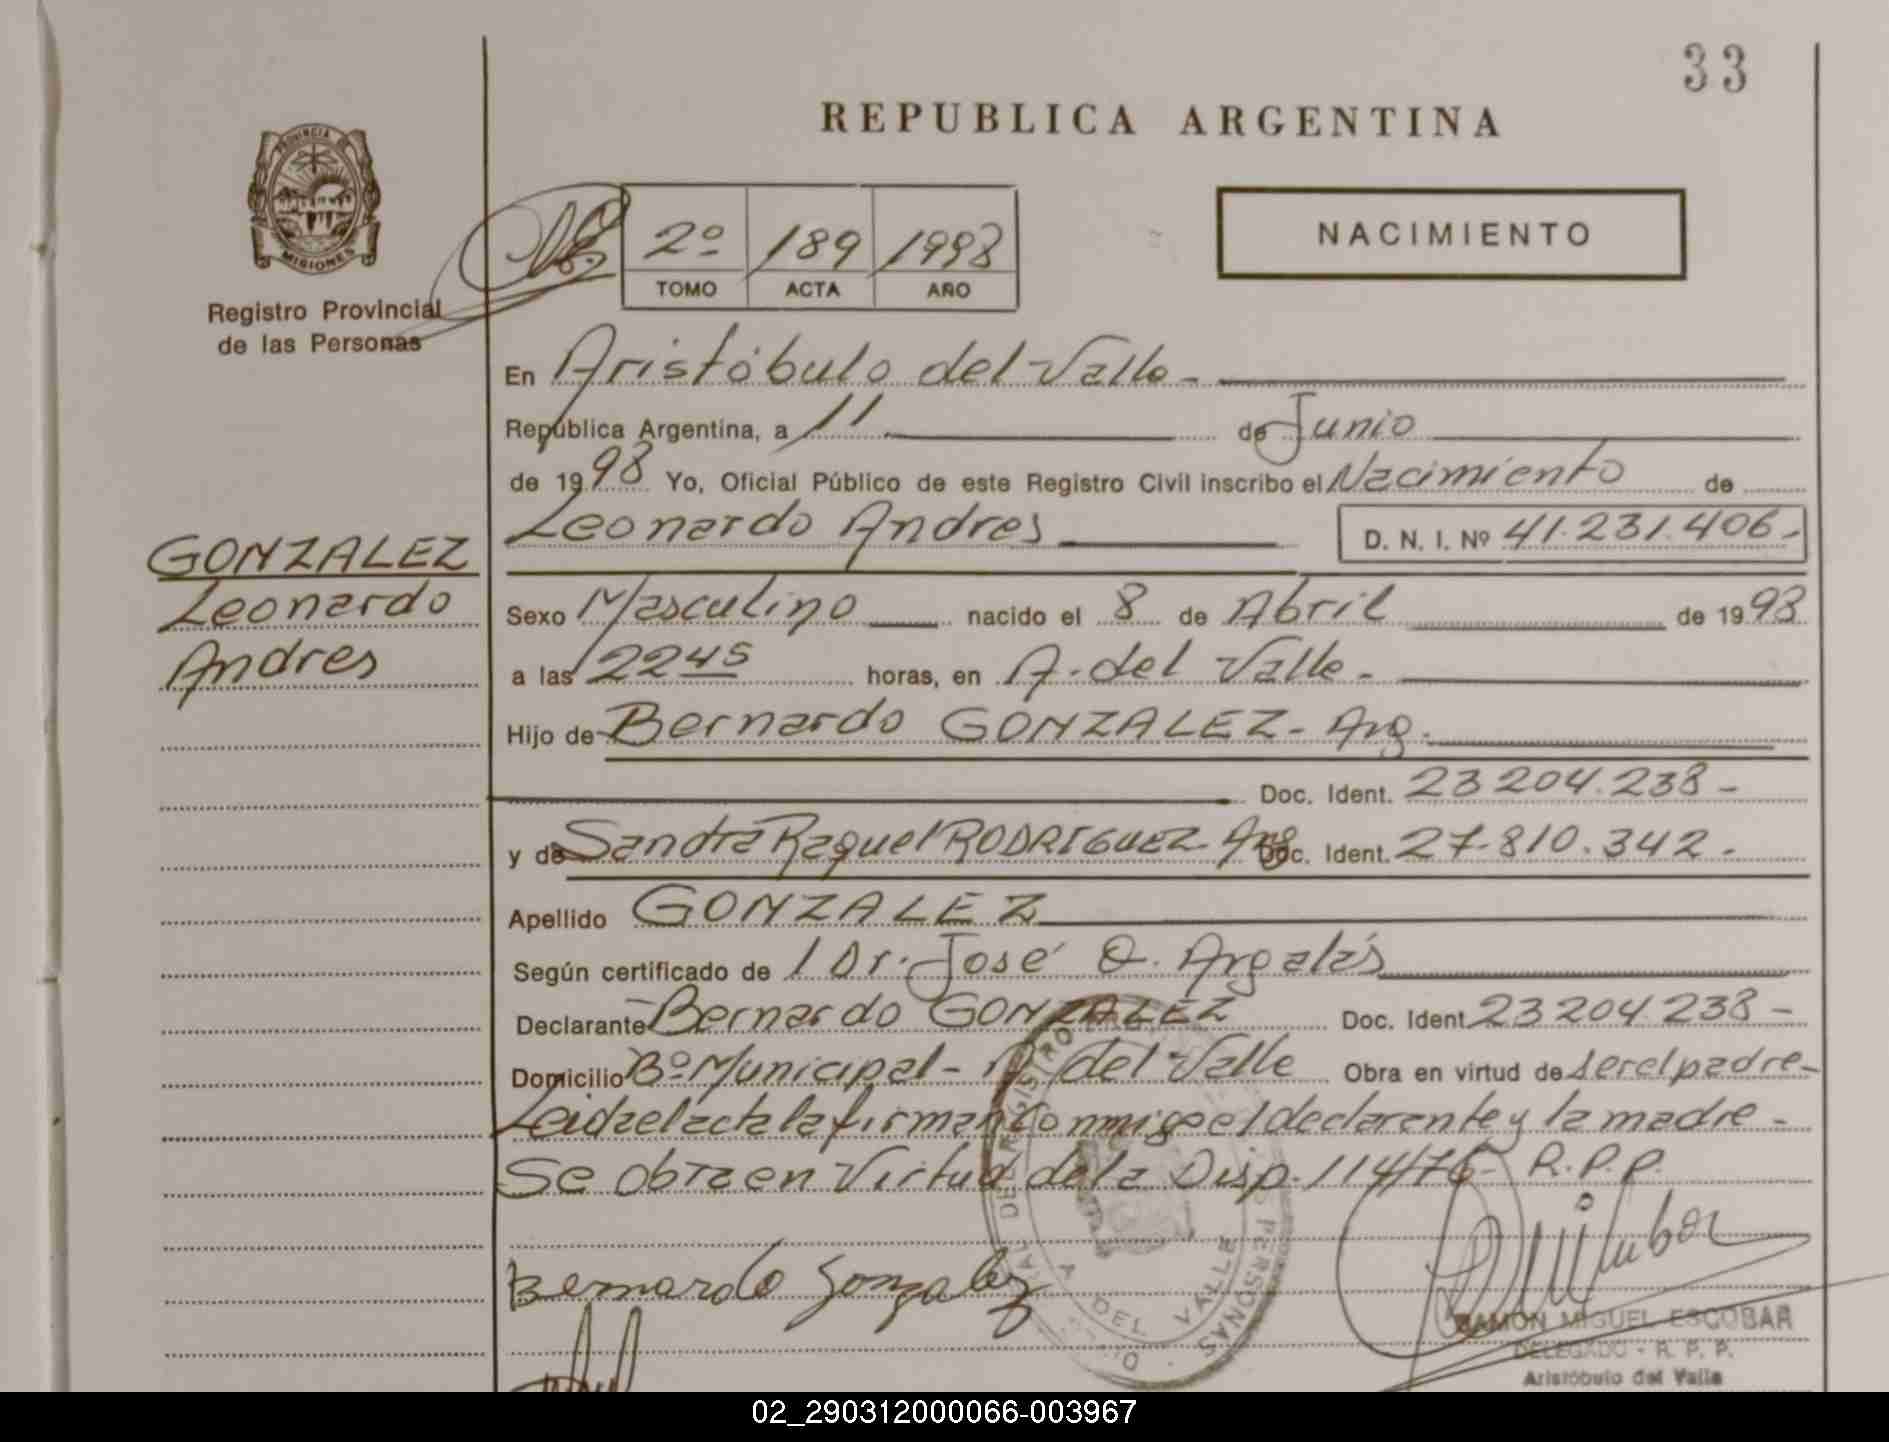 33
REPUBLICA ARGENTINA
PROVINCIA DE
MISIONES
Registro Provincial
de las Personas
2º 189 1998
TOMO ACTA AÑO
NACIMIENTO
En Aristóbulo del Valle -
República Argentina, a 11 de Junio
de 1998 Yo, Oficial Público de este Registro Civil inscribo el Nacimiento de
Leonardo Andres D. N. I. Nº 41.231.406.-
GONZALEZ
Leonardo
Andres
Sexo Masculino nacido el 8 de Abril de 1998
a las 22 45 horas, en A. del Valle -
Hijo de Bernardo GONZALEZ - Arg.
Doc. Ident. 23 204.238 -
y de Sandra Raquel RODRIGUEZ - Arg Doc. Ident. 27.810.342 -
Apellido GONZALEZ
Según certificado de / Dr. José O. Argalás
Declarante Bernardo GONZALEZ Doc. Ident. 23 204 238 -
Domicilio Bº Municipal - A. del Valle Obra en virtud de ser el padre -
Leida el acta la firman conmigo el declarante y la madre -
Se obra en Virtud de la Disp. 114/76 - R.P.P.
Bernardo Gonzalez
A DEL VALLE
RAMON MIGUEL ESCOBAR
DELEGADO - R. P. P.
Aristóbulo del Valle
02_290312000066-003967